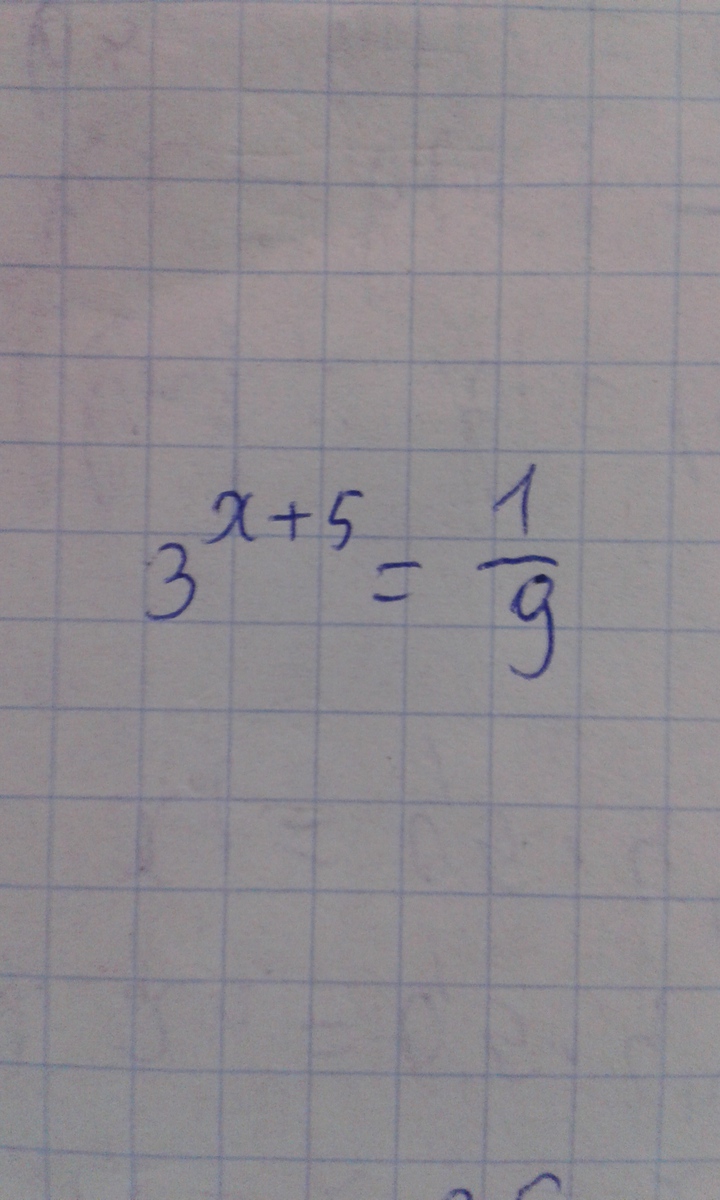 3^{x+5} = \frac{1}{9}